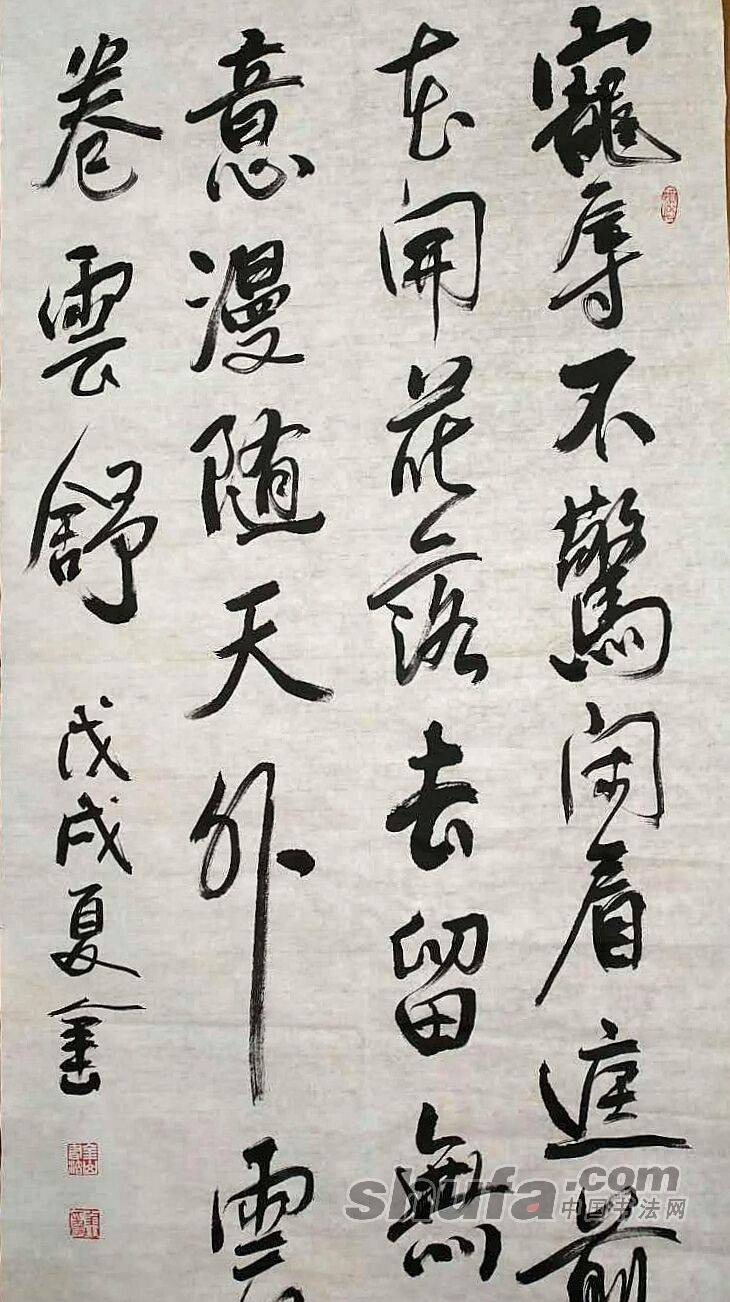 寵辱不驚閑看庭前
花開花落去留無
意漫随天外雲
卷雲舒
戊戌夏
shufa.com
中国书法网